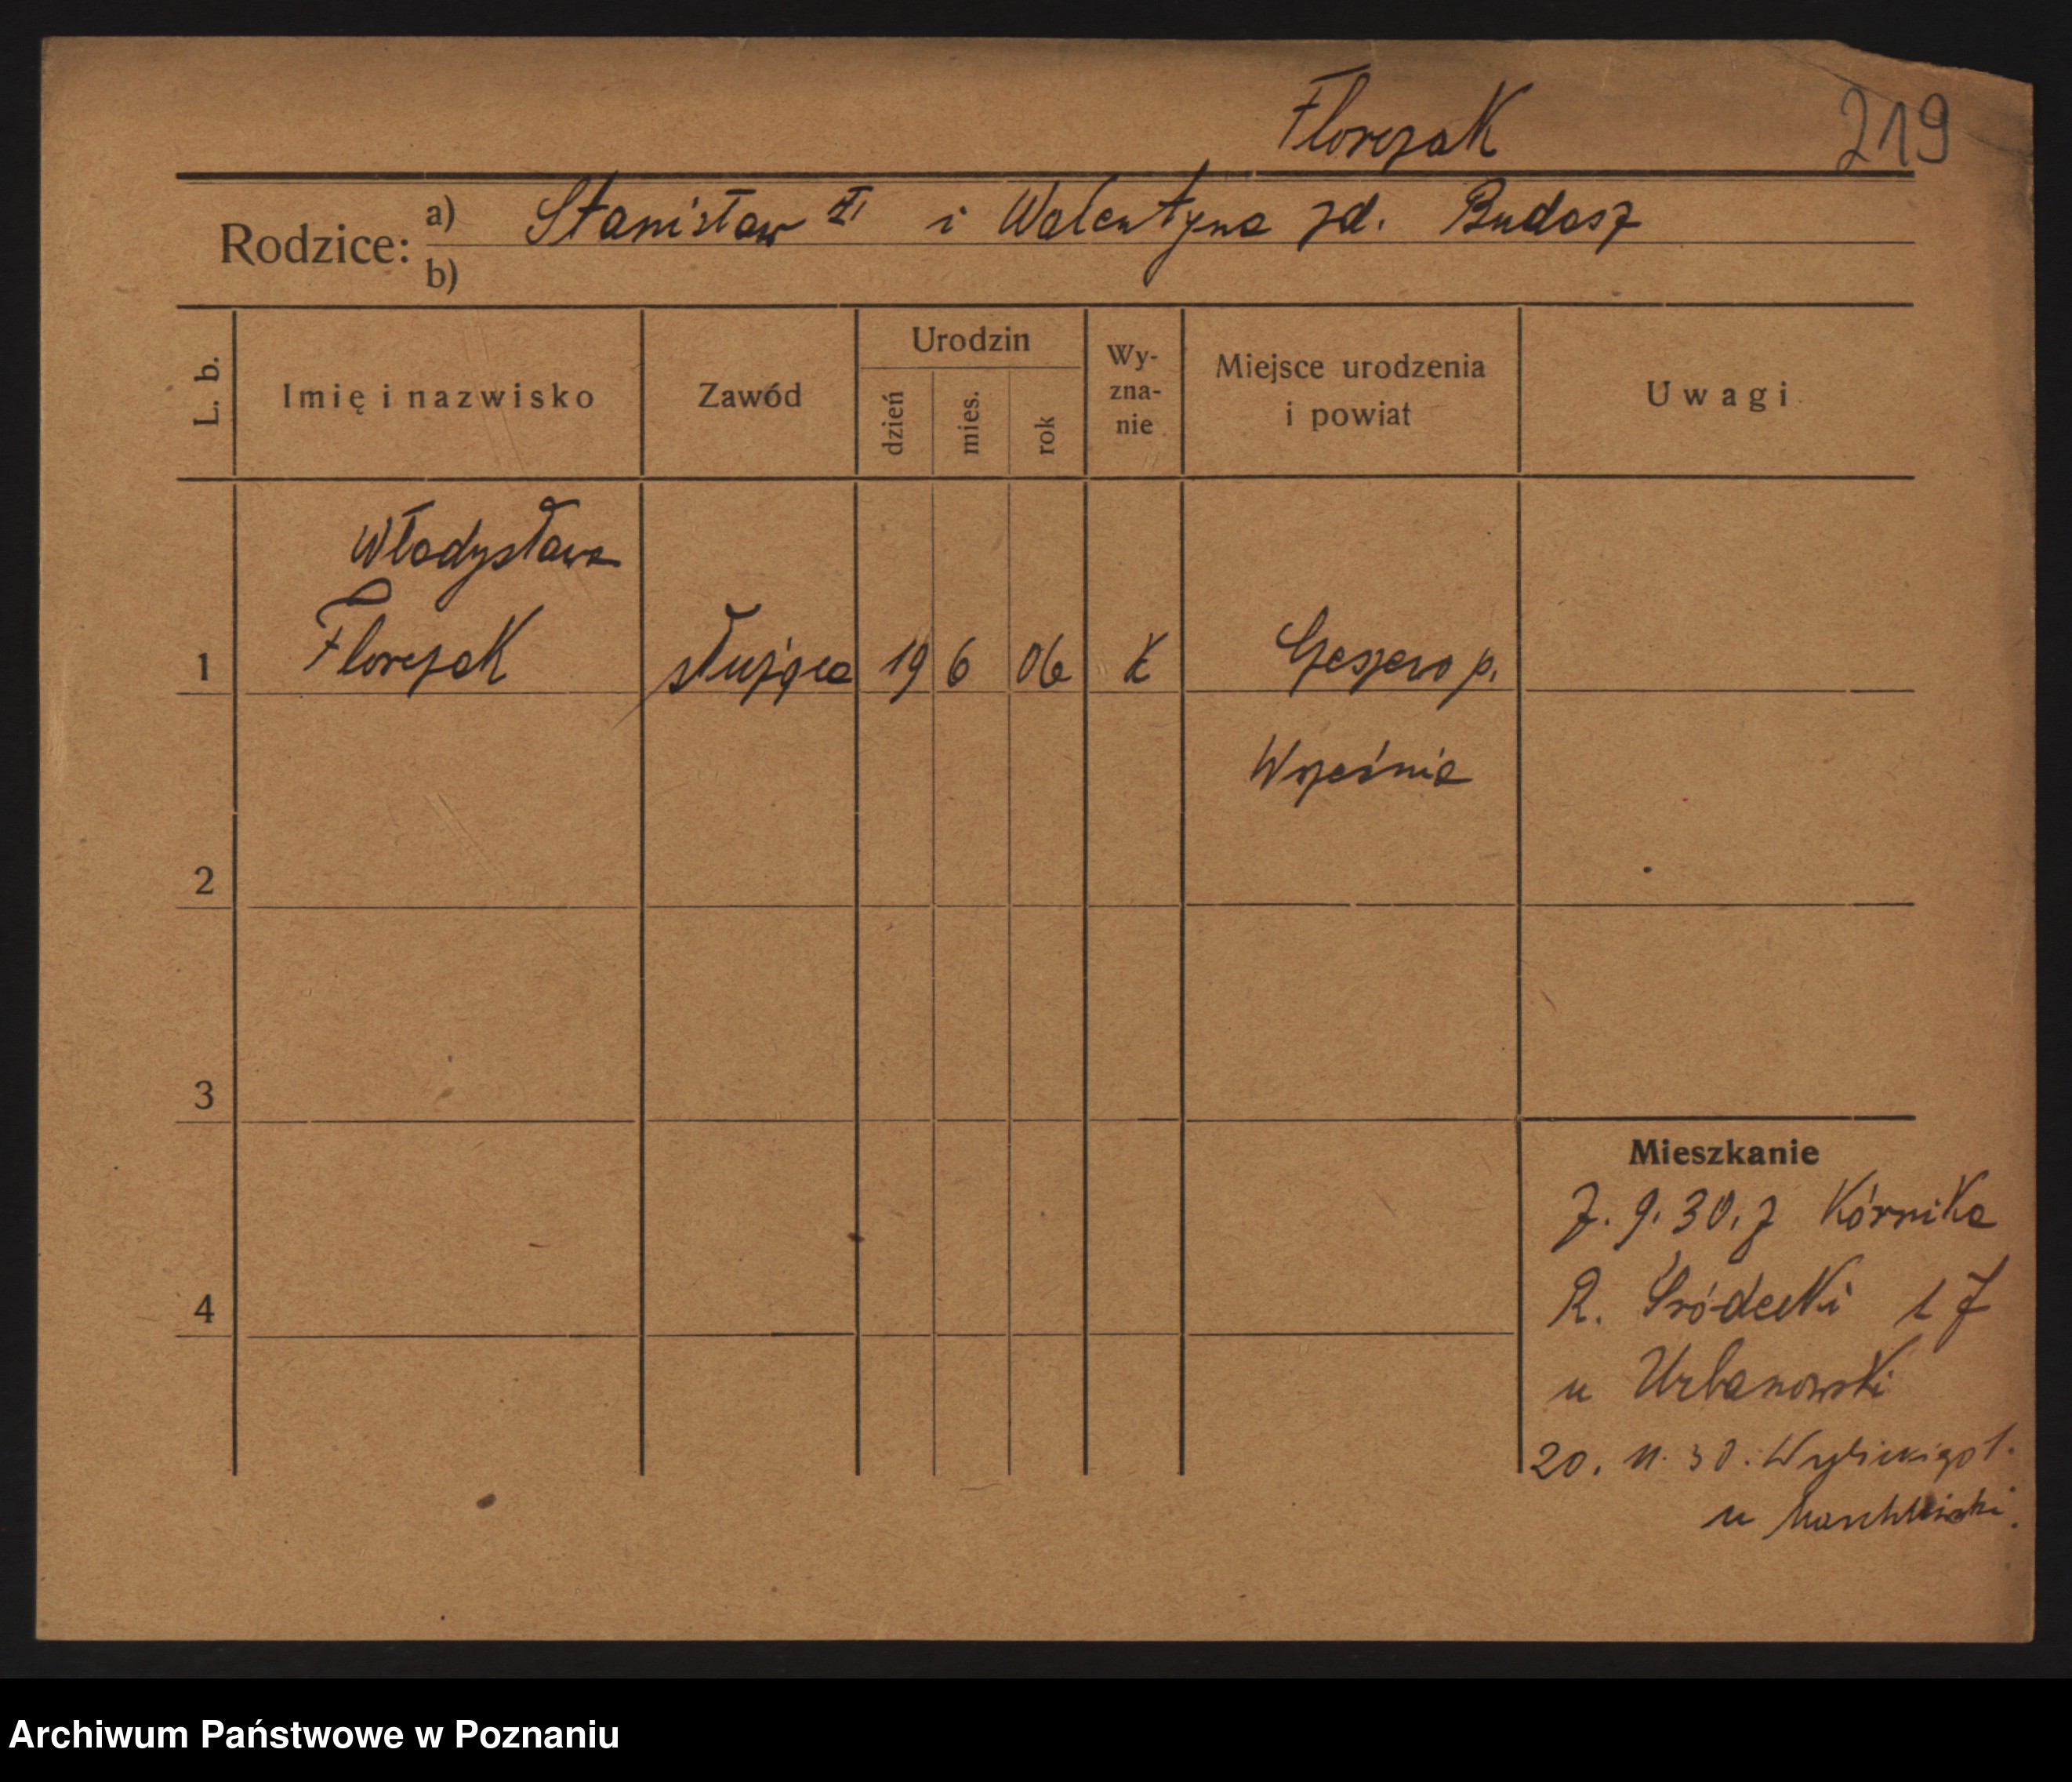 Florczak 219
Rodzice: a) Stanisław II i Walentyna zd. Budasz
b)
L. b. Imię i nazwisko Zawód Urodzin dzień mies. rok Wy-zna-nie Miejsce urodzenia i powiat Uwagi
Władysława
1 Florczak służąca 19 6 06 k p.
Września
2
3
Mieszkanie
7. 9. 30. z Kórnika
4 R. Śródecki 17
u Urbanowski
20. 11. 30. 1.
u
Archiwum Państwowe w Poznaniu